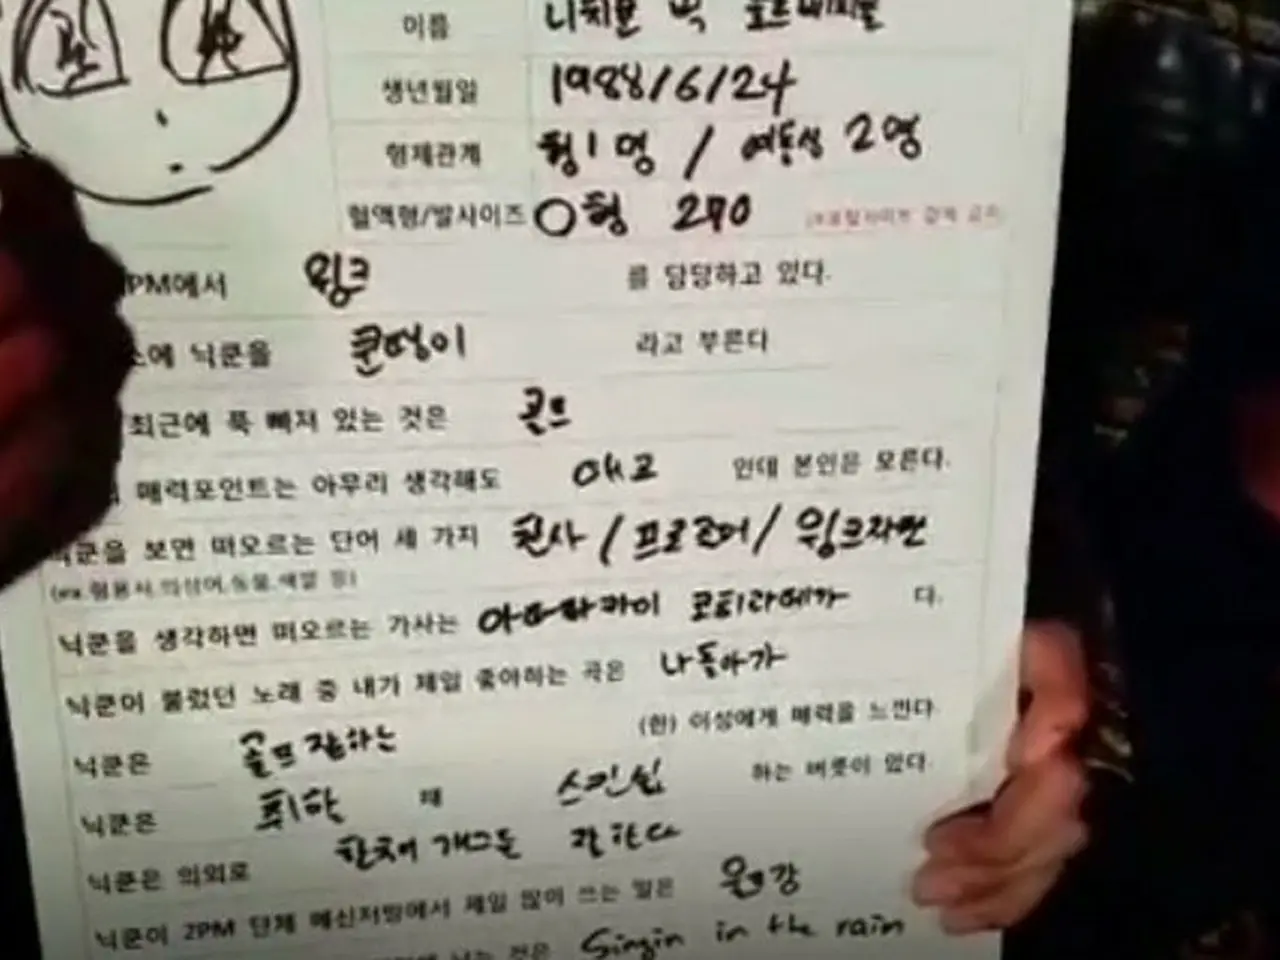 이름 니치쿤 벅 호르베치쿨
생년월일 1988/6/24
형제관계 형1명 / 여동생 2명
혈액형/발사이즈 O형 270
PM에서 윙크 를 담당하고 있다.
에 닉쿤을 쿤덩이 라고 부른다
최근에 푹 빠져 있는 것은 골프
매력포인트는 아무리 생각해도 애교 인데 본인은 모른다.
닉쿤을 보면 떠오르는 단어 세 가지 천사 / 프로골퍼 / 윙크자판
(ex.형용사,의성어,동물,색깔 등)
닉쿤을 생각하면 떠오르는 가사는 다.
닉쿤이 불렀던 노래 중 내가 제일 좋아하는 곡은 나 돌아가
닉쿤은 골프 잘하는 (한) 이성에게 매력을 느낀다.
닉쿤은 취할 때 스킨쉽 하는 버릇이 있다.
닉쿤은 의외로 한채 개그를 잘한다
닉쿤이 2PM 단체 메신저방에서 제일 많이 쓰는 말은
것은 Singin in the rain